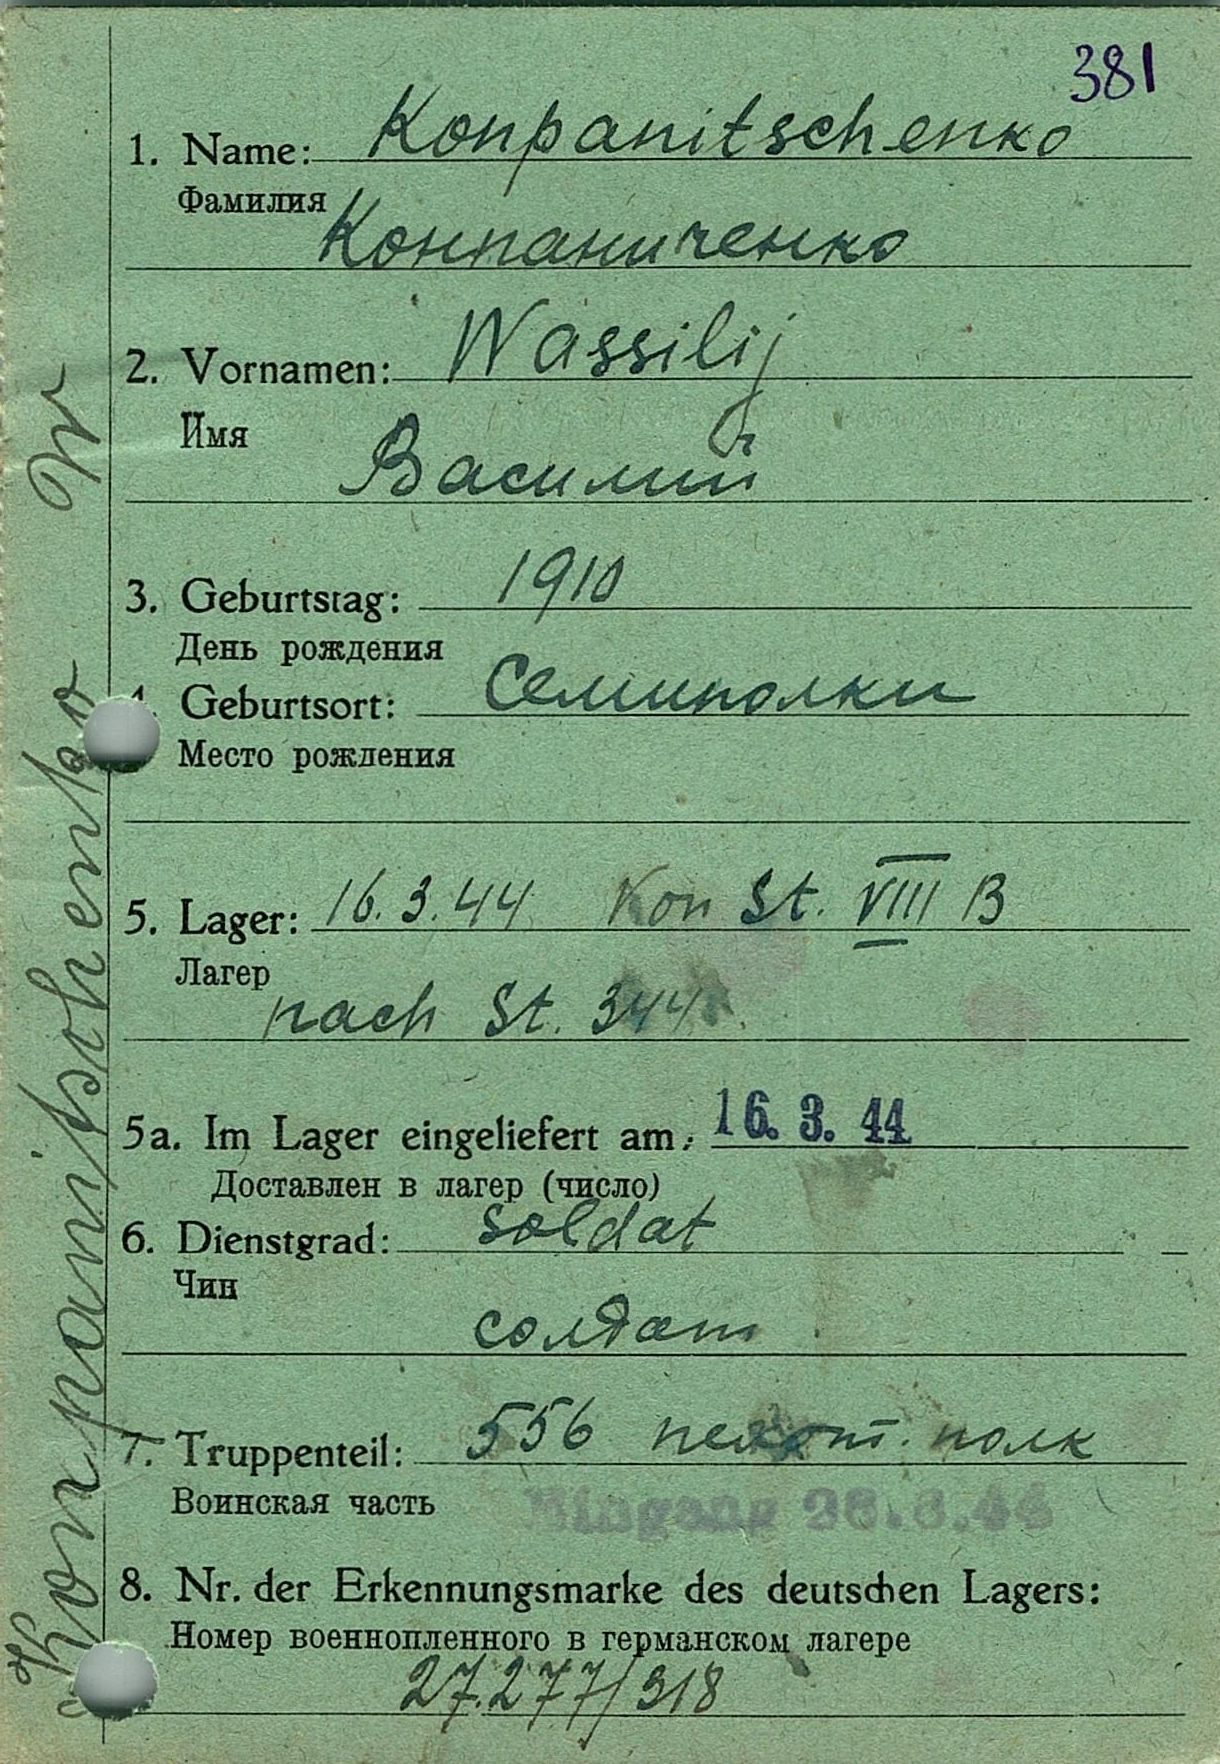 381
1. Name: Konpanitschenko
Фамилия
Конпаниченко
2. Vornamen: Wassilij
Имя
Василий
3. Geburtstag: 1910
День рождения
4. Geburtsort: Семиполки
Место рождения
5. Lager: 16.3.44 Von St. VIII B
Лагер
nach St. 344
5a. Im Lager eingeliefert am: 16. 3. 44
Доставлен в лагер (число)
6. Dienstgrad: soldat
Чин
солдат
7. Truppenteil: 556 пехот. полк
Воинская часть
Eingang
8. Nr. der Erkennungsmarke des deutschen Lagers:
Номер военнопленного в германском лагере
27.277/318
Konpanitschenko W